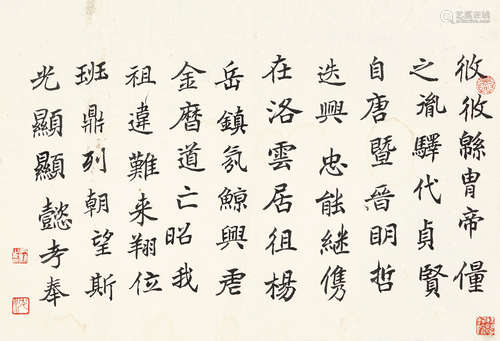 攸攸緜胄帝僮
之胤驛代貞賢
自唐暨晉明哲
迭興忠能継儁
在洛雲居徂楊
岳鎮氛鯨興虐
金曆道亡昭我
祖違難来翔位
班鼎列朝望斯
光顯顯懿考奉
艺狐在线